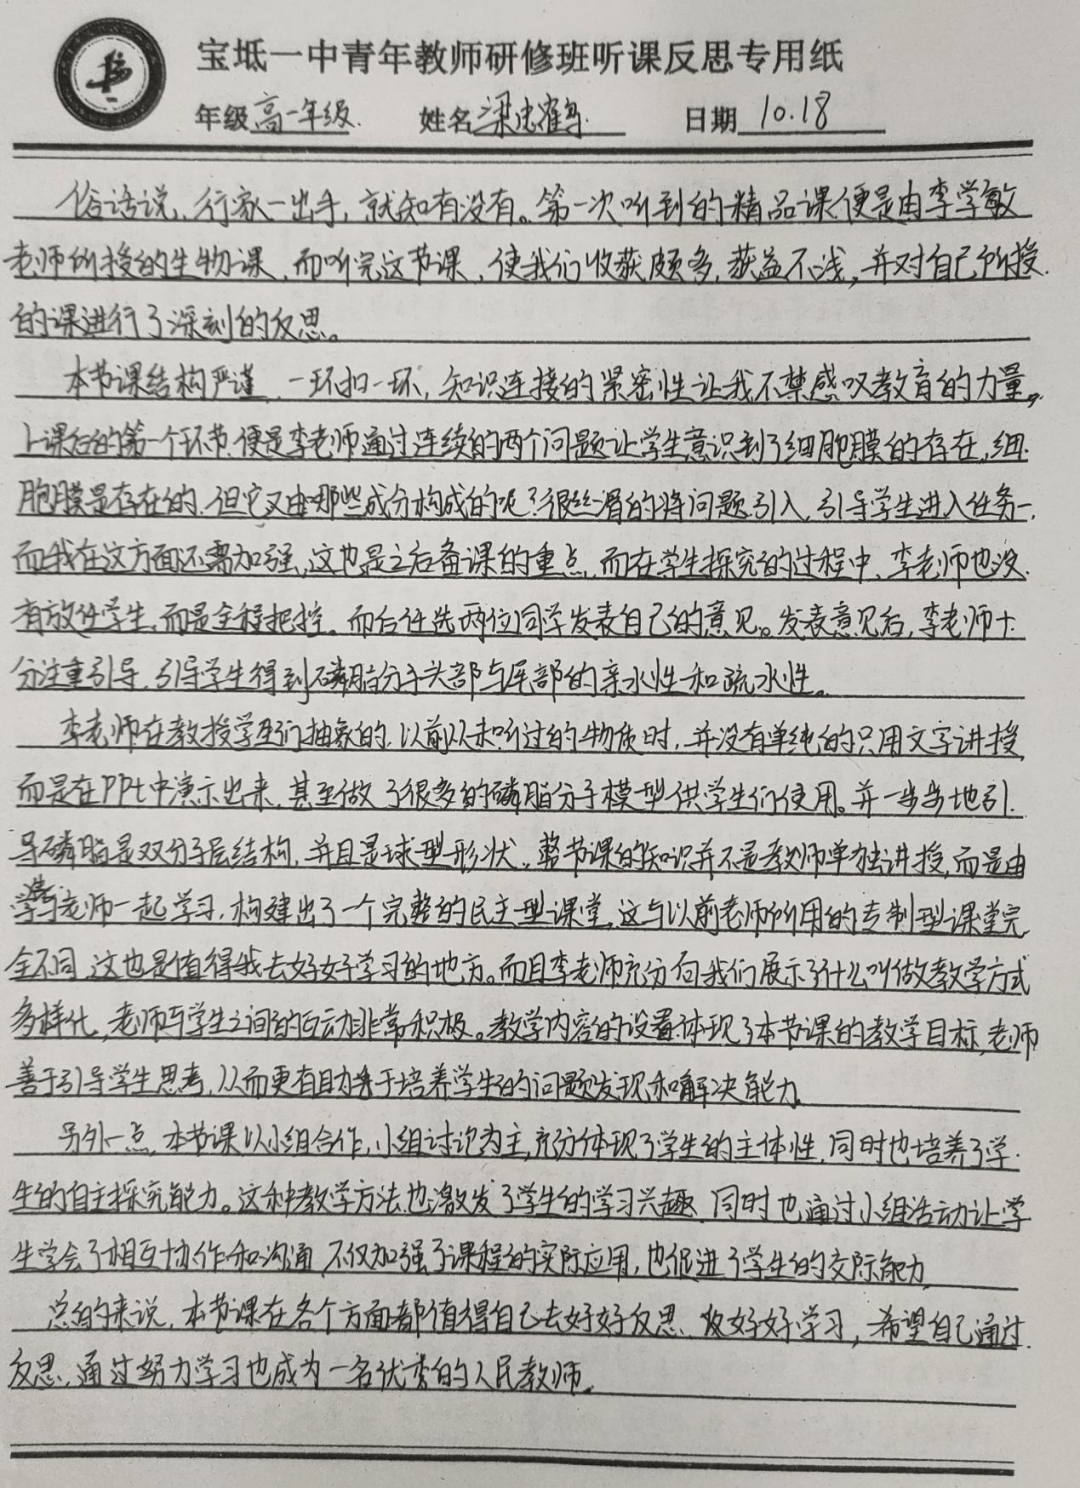 宝坻一中青年教师研修班听课反思专用纸
年级高一年级 姓名梁忠鹤 日期10.18
俗话说,行家一出手,就知有没有。第一次听到的精品课便是由李学敏
老师所授的生物课,而听完这节课,使我们收获颇多,获益不浅,并对自己所授
的课进行了深刻的反思。
本节课结构严谨,一环扣一环,知识连接的紧密性让我不禁感叹教育的力量。
上课后的第一个环节,便是李老师通过连续的两个问题让学生意识到了细胞膜的存在,细
胞膜是存在的,但它又由哪些成分构成的呢?很丝滑的将问题引入,引导学生进入任务一,
而我在这方面还需加强,这也是之后备课的重点,而在学生探究的过程中,李老师也没
有放任学生,而是全程把控。而后任选两位同学发表自己的意见。发表意见后,李老师十
分注重引导,引导学生得到磷脂分子头部与尾部的亲水性和疏水性。
李老师在教授学生们抽象的,以前从未听过的物质时,并没有单纯的只用文字讲授,
而是在PPt中演示出来,甚至做了很多的磷脂分子模型供学生们使用。并一步步地引
导磷脂是双分子层结构,并且是球型形状,整节课的知识并不是教师单独讲授,而是由
学生与老师一起学习,构建出了一个完整的民主型课堂,这与以前老师所用的专制型课堂完
全不同,这也是值得我去好好学习的地方。而且李老师充分向我们展示了什么叫做教学方式
多样化,老师与学生之间的互动非常积极。教学内容的设置体现了本节课的教学目标,老师
善于引导学生思考,从而更有助于培养学生的问题发现和解决能力。
另外一点,本节课以小组合作,小组讨论为主,充分体现了学生的主体性,同时也培养了学
生的自主探究能力。这种教学方法也激发了学生的学习兴趣,同时也通过小组活动让学
生学会了相互协作和沟通,不仅加强了课程的实际应用,也促进了学生的交际能力。
总的来说,本节课在各个方面都值得自己去好好反思、及好好学习,希望自己通过
反思,通过努力学习也成为一名优秀的人民教师。